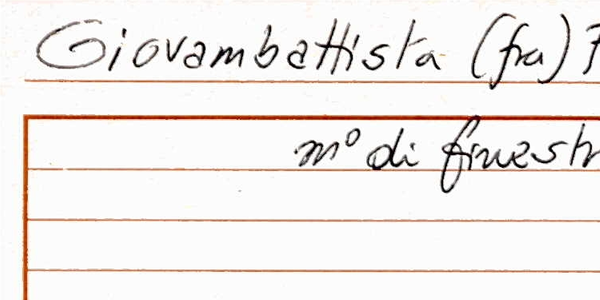 Giovambattista (fra) ?
m° di finestr